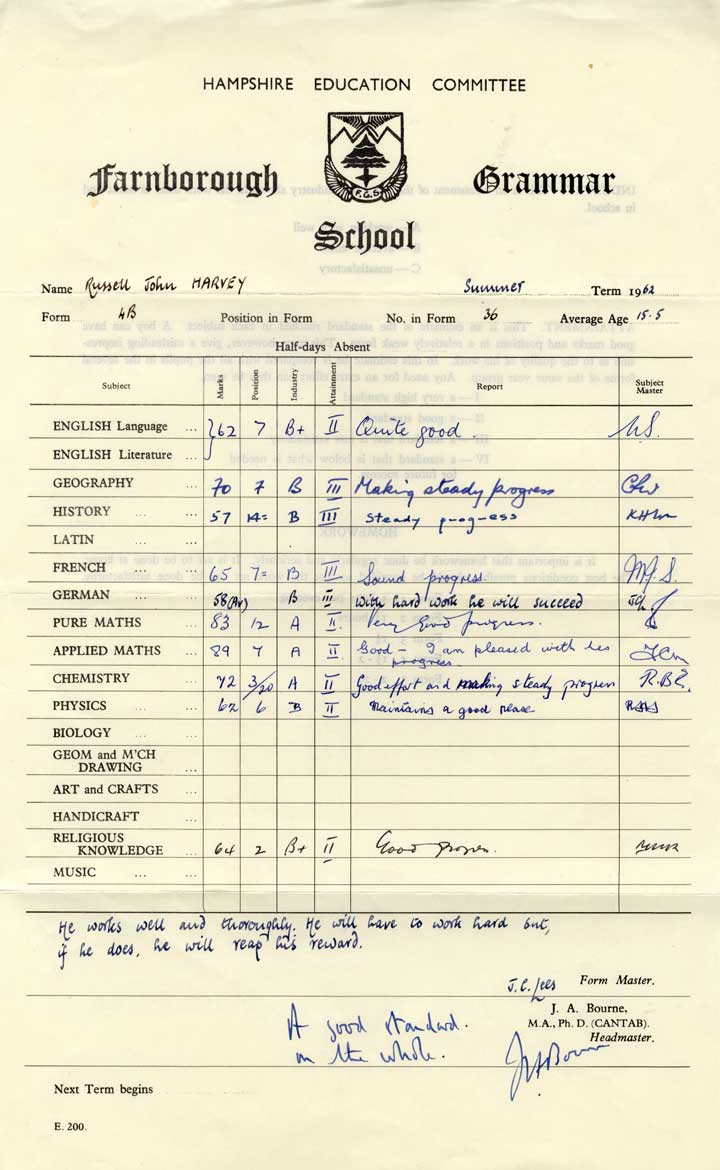 HAMPSHIRE EDUCATION COMMITTEE
F.G.S.
Farnborough Grammar
School
Name Russell John HARVEY Summer Term 1962
Form 4B Position in Form No. in Form 36 Average Age 15.5
Half-days Absent
Subject Marks Position Industry Attainment Report Subject Master
ENGLISH Language ... } 62 7 B+ II Quite good.
ENGLISH Literature ...
GEOGRAPHY ... 70 7 B III Making steady progress
HISTORY ... ... 57 14= B III Steady progress
LATIN ... ...
FRENCH ... ... 65 7= B III Sound progress.
GERMAN ... ... 58(Av) B III With hard work he will succeed
PURE MATHS ... 83 12 A II Very good progress.
APPLIED MATHS ... 89 7 A II Good - I am pleased with his
progress.
CHEMISTRY ... 72 3/20 A II Good effort and making steady progress R.B.E.
PHYSICS ... ... 62 6 B II Maintains a good
BIOLOGY ... ...
GEOM and M'CH
DRAWING ...
ART and CRAFTS ...
HANDICRAFT ...
RELIGIOUS
KNOWLEDGE ... 64 2 B+ II Good
MUSIC ... ...
He works well and thoroughly. He will have to work hard but,
if he does, he will reap his reward.
J.C. Lees Form Master.
A good standard.
on the whole.
J. A. Bourne,
M.A., Ph. D. (CANTAB).
Headmaster.
JABourne
Next Term begins
E. 200.